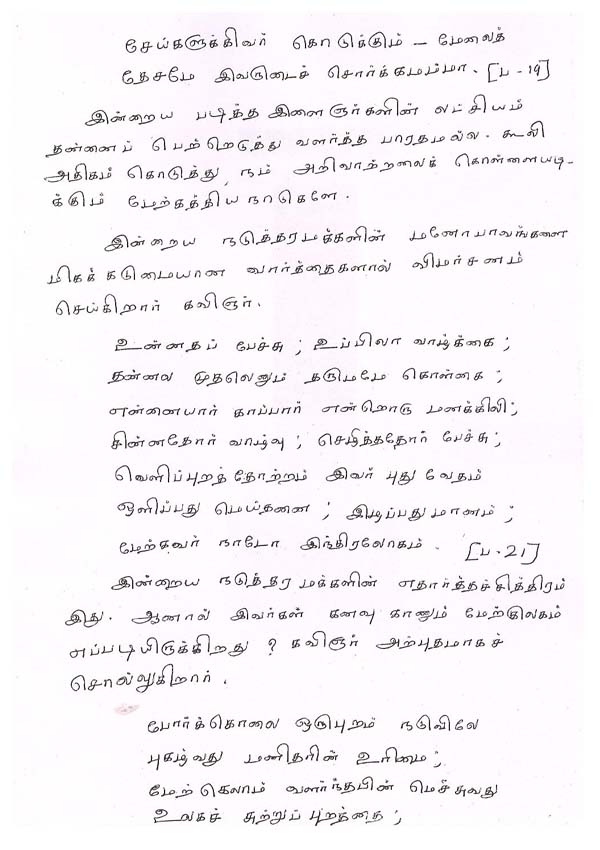 சேய்களுக்கிவர் கொடுக்கும் – மேலைத்
தேசமே இவருடைச் சொர்க்கமம்மா. [ப - 19]
இன்றைய படித்த இளைஞர்களின் லட்சியம்
தன்னைப் பெற்றெடுத்து வளர்த்த பாரதமல்ல. கூலி
அதிகம் கொடுத்து, நம் அறிவாற்றலைக் கொள்ளையடி-
க்கும் மேற்கத்திய நாடுகளே.
இன்றைய நடுத்தரமக்களின் மனோபாவங்களை
மிகக் கடுமையான வார்த்தைகளால் விமர்சனம்
செய்கிறார் கவிஞர்.
உன்னதப் பேச்சு ; உப்பிலா வாழ்க்கை ;
தன்னல முதலெனும் தருமமே கொள்கை ;
என்னையார் காப்பார் என்றொரு மனக்கிலி ;
சின்னதோர் வாழ்வு ; செழித்ததோர் பேச்சு ;
வெளிப்புறத் தோற்றம் இவர் புது வேதம்
ஒளிப்பது மெய்தனை ; இடிப்பது மானம் ;
மேற்கவர் நாடோ இந்திரலோகம். [ப. 21]
இன்றைய நடுத்தர மக்களின் எதார்த்தச்சித்திரம்
இது. ஆனால் இவர்கள் கனவு காணும் மேற்குலகம்
எப்படியிருக்கிறது ? கவிஞர் அற்புதமாகச்
சொல்லுகிறார்.
போர்க்கொலை ஒருபுறம் நடுவிலே
புகழ்வது மனிதரின் உரிமை ;
மேற்கெலாம் வளர்ந்தபின் மெச்சுவது
உலகச் சுற்றுப் புறத்தை ;